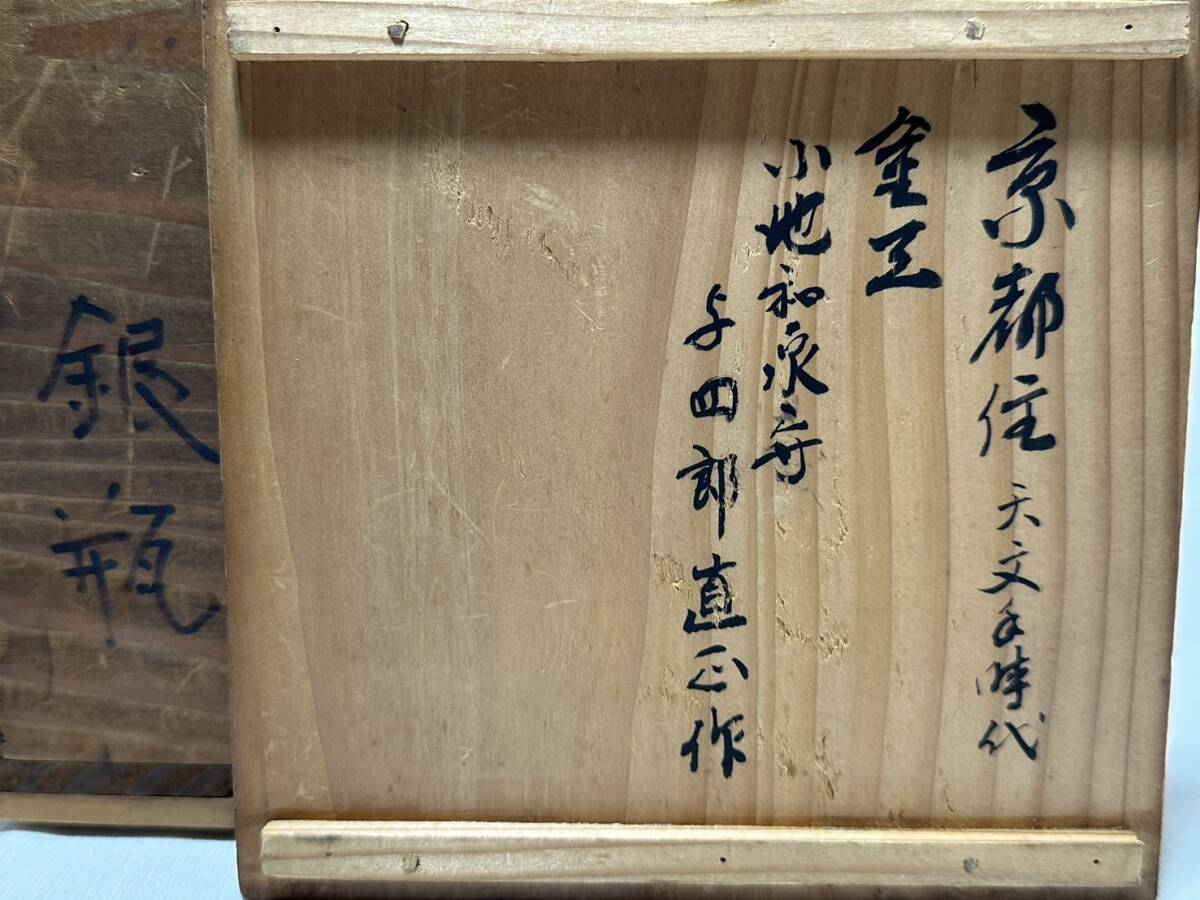 京都住天文年時代
金工
小池和泉守
与四郎直正作
銀瓶